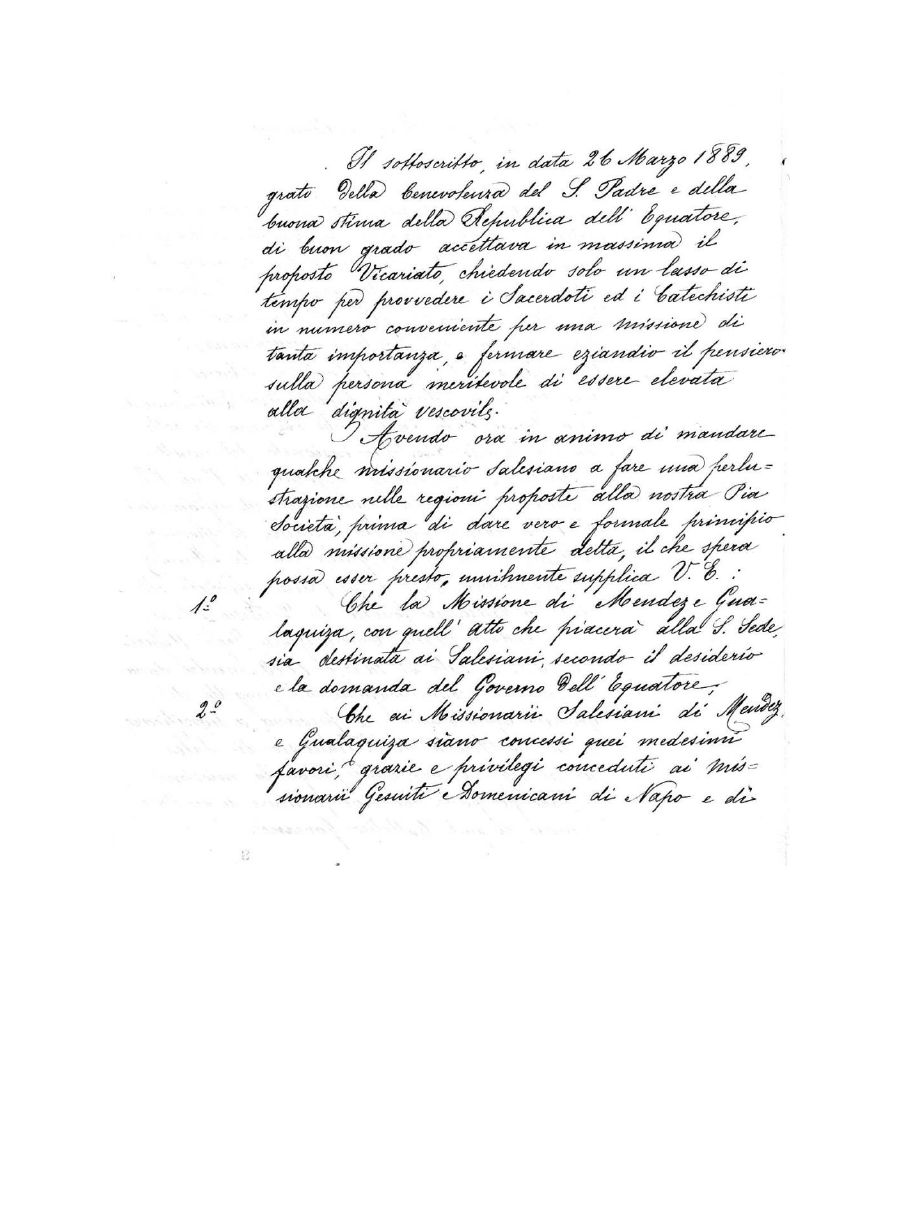 Il sottoscritto, in data 26 Marzo 1889,
grato della benevolenza del S. Padre e della
buona stima della Republica dell' Equatore,
di buon grado accettava in massima il
proposto Vicariato, chiedendo solo un lasso di
tempo per provvedere i Sacerdoti ed i Catechisti
in numero conveniente per una missione di
tanta importanza, e fermare eziandio il pensiero
sulla persona meritevole di essere elevata
alla dignità vescovile.
Avendo ora in animo di mandare
qualche missionario Salesiano a fare una perlu=
strazione nelle regioni proposte alla nostra Pia
Società, prima di dare vero e formale principio
alla missione propriamente detta, il che spera
possa esser presto, umilmente supplica V. E. :
1º Che la Missione di Mendez e Gua=
laquiza, con quell' atto che piacerà alla S. Sede,
sia destinata ai Salesiani, secondo il desiderio
e la domanda del Governo dell' Equatore;
2º Che ai Missionarii Salesiani di Mendez
e Gualaquiza siano concessi quei medesimi
favori, grazie e privilegi conceduti ai mis=
sionarii Gesuiti e Domenicani di Napo e di